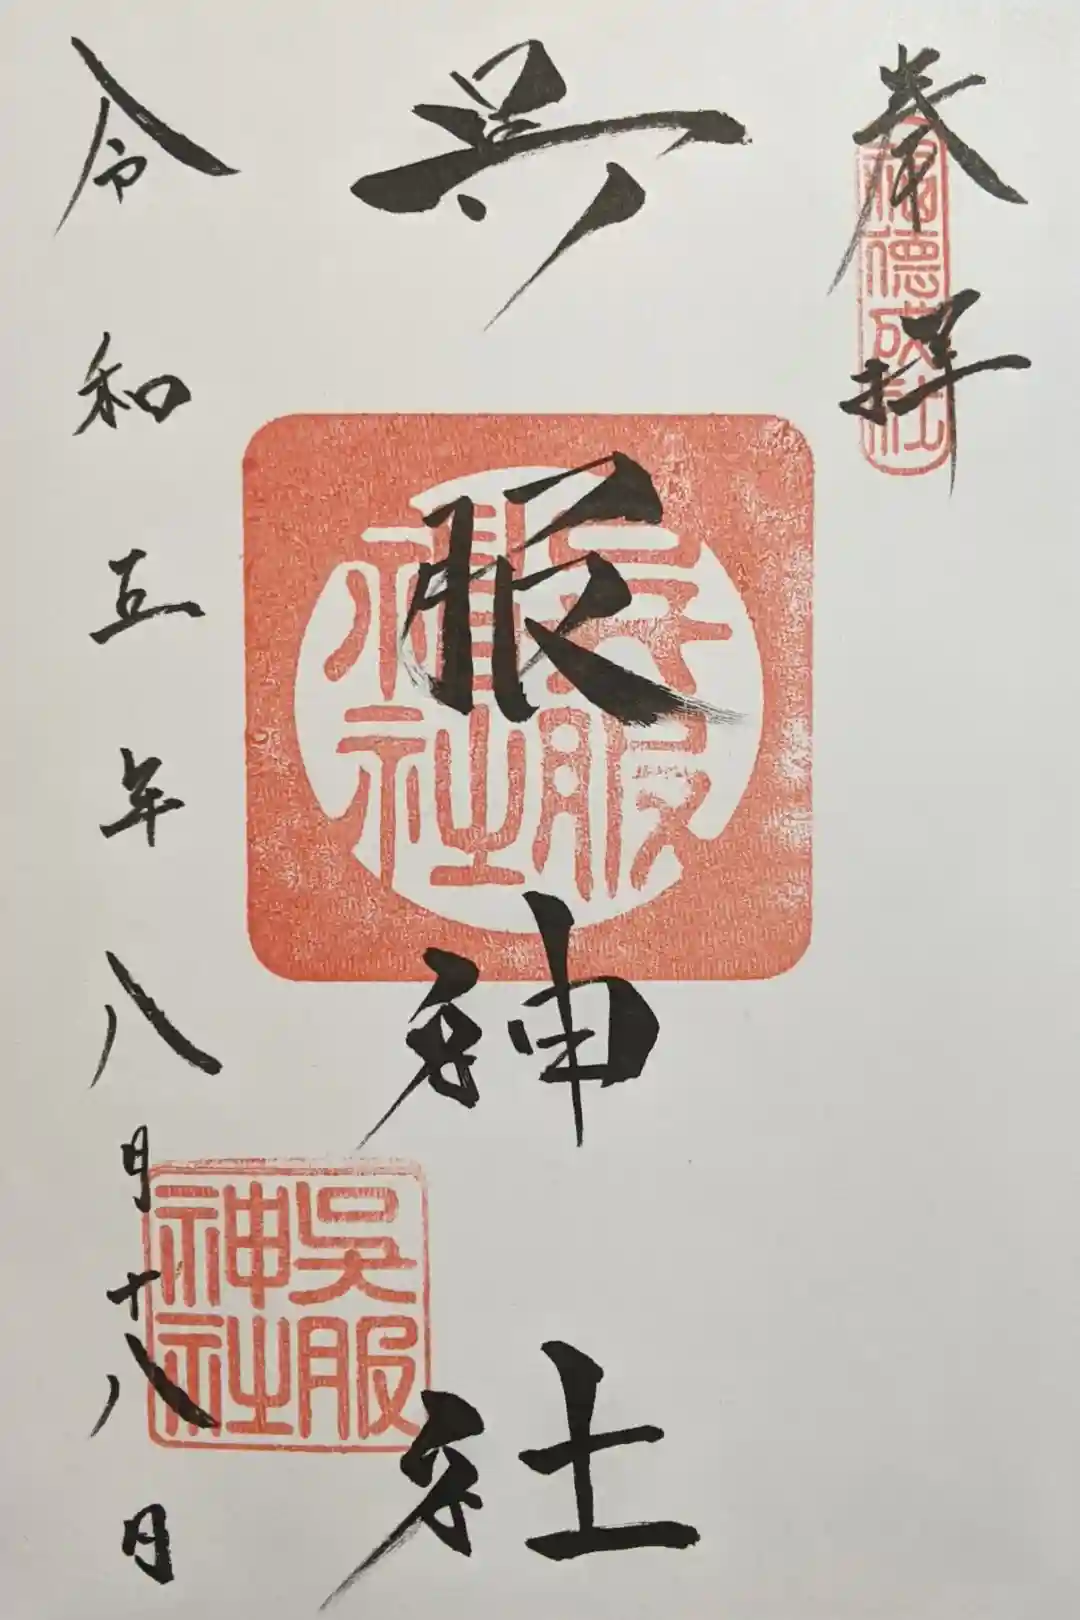 奉拝
福徳成社
呉服神社
呉服神社
令和五年八月十八日
呉服神社